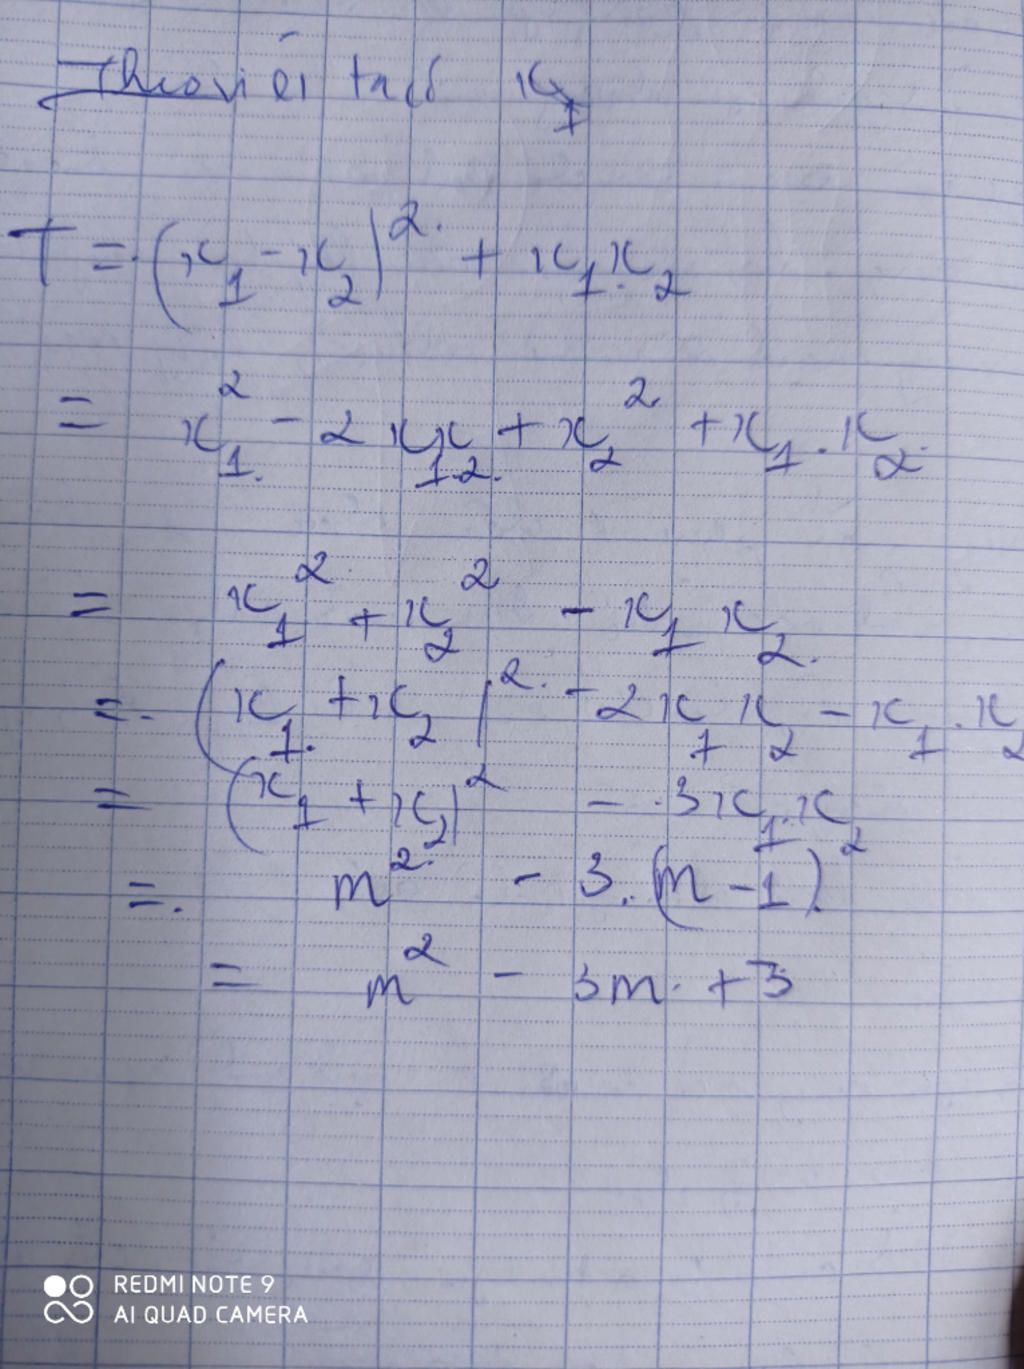 Theo vi ét ta có x₁
T = (x₁ - x₂)² + x₁.x₂
= x₁² - 2x₁x₂ + x₂² + x₁.x₂
= x₁² + x₂² - x₁x₂
= (x₁ + x₂)² - 2x₁x₂ - x₁.x₂
= (x₁ + x₂)² - 3x₁.x₂
= m² - 3.(m - 1)
= m² - 3m + 3
REDMI NOTE 9
AI QUAD CAMERA